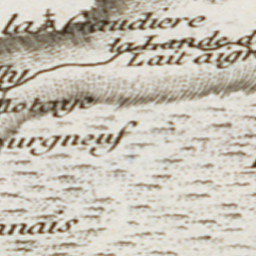 la Graudiere
la Lande d
Lait aigr
lly
Motaye
ourgneuf
nais